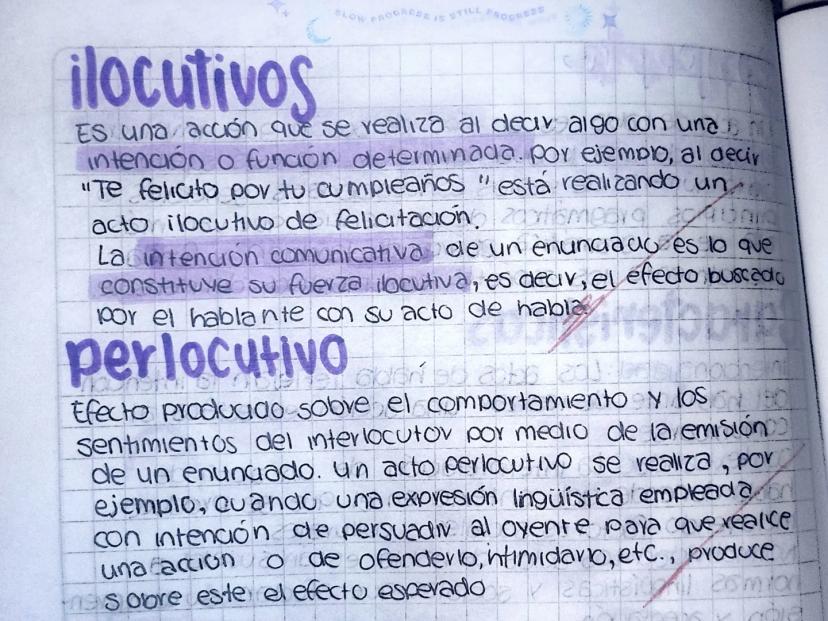 SLOW PROGRESS IS STILL PROGRESS
ilocutivos
Es una acción que se realiza al decir algo con una
intención o función determinada. por ejemplo, al decir
"Te felicito por tu cumpleaños" está realizando un
acto ilocutivo de felicitación.
La intención comunicativa de un enunciado es lo que
constituye su fuerza ilocutiva, es decir, el efecto buscado
por el hablante con su acto de habla
perlocutivo
Efecto producido sobre el comportamiento y los
sentimientos del interlocutor por medio de la emisión
de un enunciado. un acto perlocutivo se realiza, por
ejemplo, cuando una expresión lingüística empleada
con intención de persuadir al oyente para que realice
una acción o de ofenderlo, intimidarlo, etc., produce
sobre este el efecto esperado